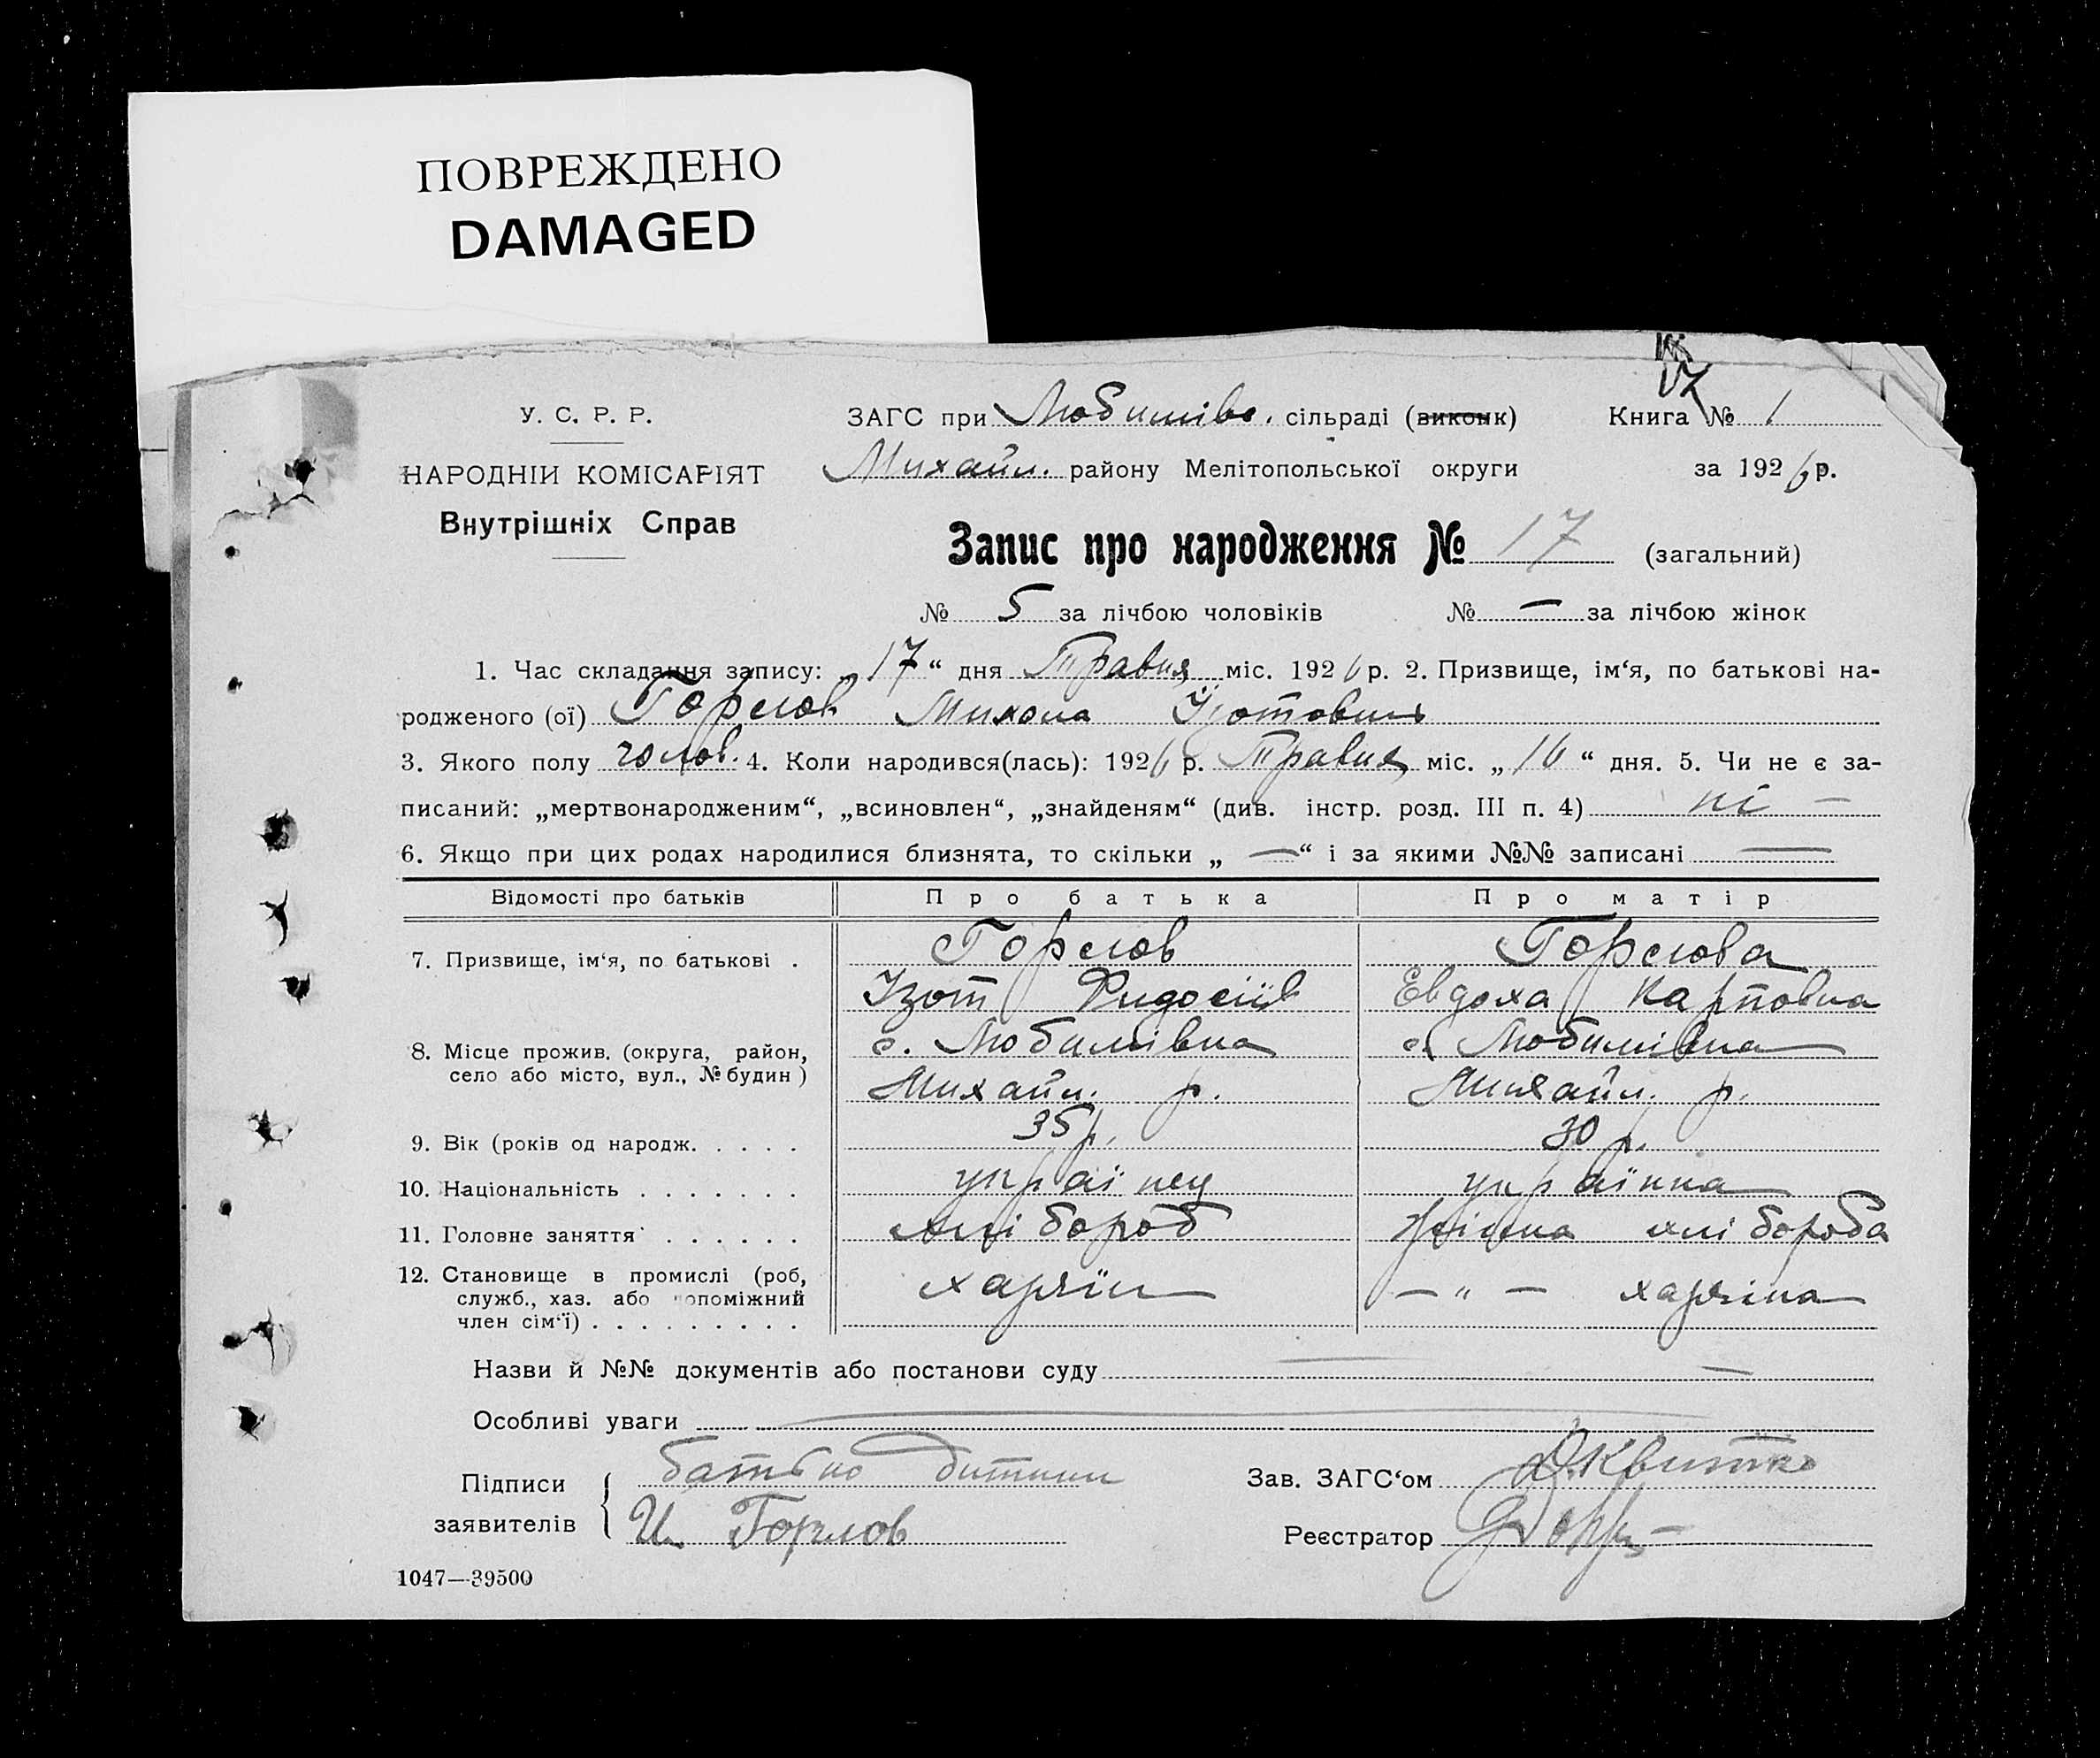 ПОВРЕЖДЕНО
DAMAGED
17
У. С. Р. Р.
ЗАГС при Любимівс. сільраді (виконк)
Книга № 1
НАРОДНІЙ КОМІСАРІЯТ
Михайл. району Мелітопольської округи
за 1926 р.
Внутрішніх Справ
Запис про народження № 17 (загальний)
№ 5 за лічбою чоловіків № — за лічбою жінок
1. Час складання запису: „ 17 “ дня Травня міс. 1926 р. 2. Призвище, ім‘я, по батькові на-
родженого (ої) Горлов Микола Ізотович
3. Якого полу чолов. 4. Коли народився(лась): 1926 р. Травня міс. „ 16 “ дня. 5. Чи не є за-
писаний: „мертвонародженим“, „всиновлен“, „знайденям“ (див. інстр. розд. III п. 4) ні —
6. Якщо при цих родах народилися близнята, то скільки „ — “ і за якими №№ записані —
Відомості про батьків Про батька Про матір
7. Призвище, ім‘я, по батькові . Горлов Горлова
Ізот Фидосіїв Евдоха Карповна
8. Місце прожив. (округа, район, село або місто, вул., № будин ) с. Любимівка с. Любимівка
Михайл. р. Михайл. р.
9. Вік (років од народж. . . . . 35 р. 30 р.
10. Національність . . . . . . . українец українка
11. Головне заняття . . . . . . хлібороб жінка хлібороба
12. Становище в промислі (роб, служб., хаз. або опоміжний член сім‘ї) . . . . . . . . . хазяїн — „ — хазяіна
Назви й №№ документів або постанови суду — —
Особливі уваги —
Підписи заявителів { батько дитини
И Горлов
Зав. ЗАГС‘ом Квитко
Реєстратор
1047—39500